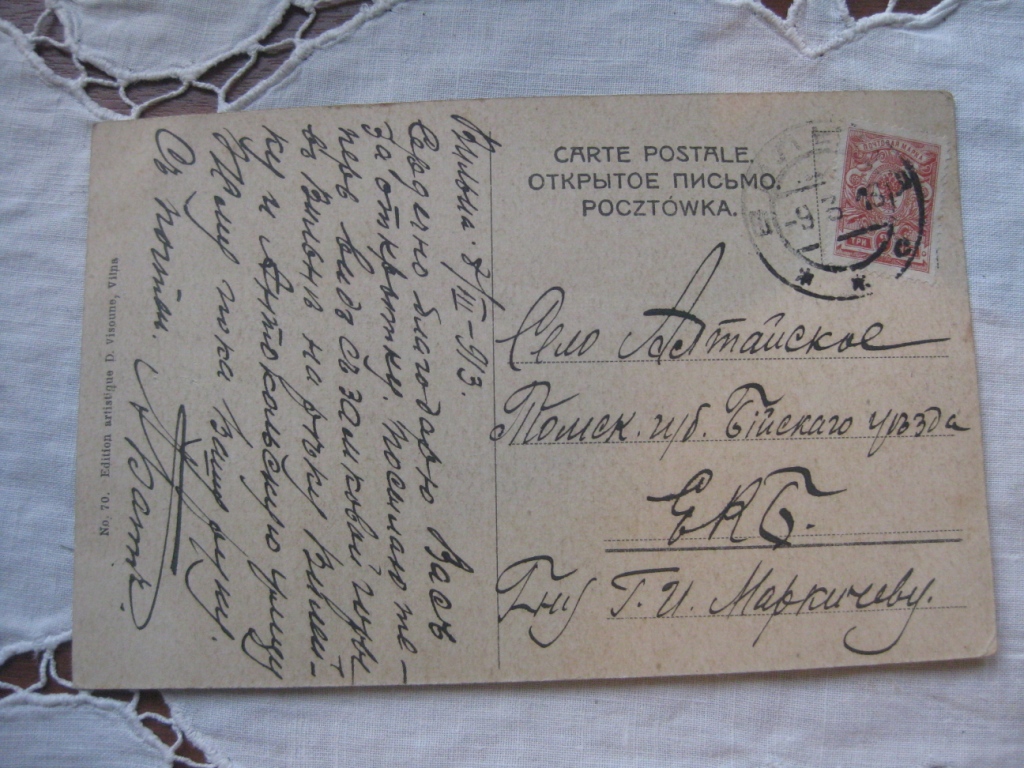 CARTE POSTALE.
ОТКРЫТОЕ ПИСЬМО.
POCZTÓWKA.
Село Алтайское
Томск. губ. Бійскаго уѣзда
ЕКБ.
Г-ну Г. И. Маркичеву.
Вильна. 8/III-913
Сердечно благодарю Васъ
за открытку. Посылаю те-
перь видъ съ замковой горы
въ Вильнѣ на рѣку Вилей-
ку и Антокольскую улицу
Жму пока Вашу руку.
Съ почтен.
No. 70. Edition artistique D. Visoune, Vilna
ТРИ